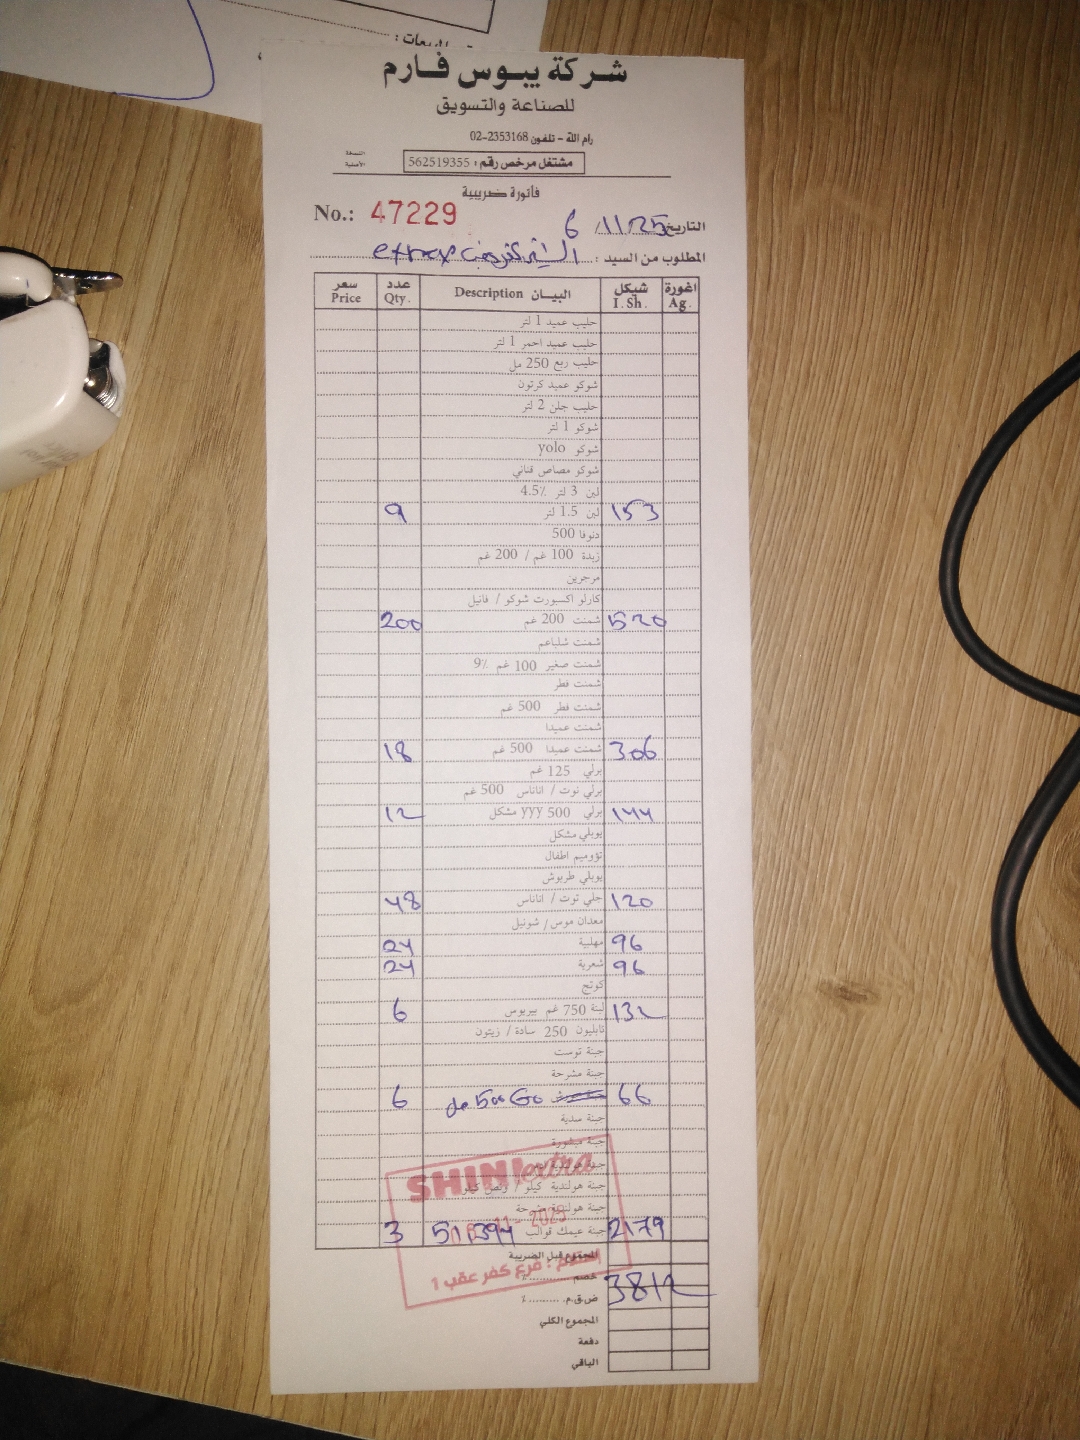 شركة يبوس فارم
للصناعة والتسويق
رام الله - تلفون 02-2353168
النسخة الأصلية
مشتغل مرخص رقم : 562519355
فاتورة ضريبية
No.: 47229
التاريخ 6/11/25
المطلوب من السيد : extra
سعر Price عدد Qty. البيان Description شيكل I.Sh. اغورة Ag.
حليب عميد 1 لتر
حليب عميد احمر 1 لتر
حليب ربع 250 مل
شوكو عميد كرتون
حليب جلن 2 لتر
شوكو 1 لتر
شوكو yolo
شوكو مصاص قناني
لبن 3 لتر 4.5٪
9 لبن 1.5 لتر 153
دنوفا 500
زبدة 100 غم / 200 غم
مرجرين
كارلو اكسبورت شوكو / فانيل
200 شمنت 200 غم 520
شمنت شلباعم
شمنت صغير 100 غم 9٪
شمنت فطر
شمنت فطر 500 غم
شمنت عميدا
18 شمنت عميدا 500 غم 306
برلي 125 غم
برلي توت / اناناس 500 غم
12 برلي 500 yyy مشكل 144
يوبلي مشكل
تؤوميم اطفال
يوبلي طربوش
48 جلي توت / اناناس 120
معدان موس / شونيل
24 مهلبية 96
24 شعرية 96
كوتج
6 لبنة 750 غم بيريوس 132
نابليون 250 سادة / زيتون
جبنة توست
جبنة مشرحة
6 500 66
جبنة صدية
جبنة مبشورة
جبنة هولندية
جبنة هولندية كيلو / ونص كيلو
جبنة هولندية مشرحة
3 جبنة عيمك قوالب 2179
SHINI extra
11- 2025
استلام : فرع كفر عقب 1
المجموع قبل الضريبة
خصم .......... ٪ 3812
ض.ق.م. .......... ٪
المجموع الكلي
دفعة
الباقي